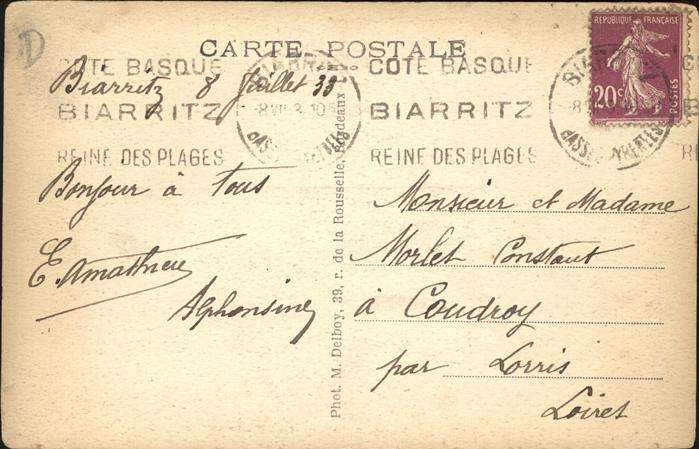 D
CARTE POSTALE
CÔTE BASQUE
BIARRITZ
REINE DES PLAGES
BIARRITZ
BASSES
CÔTE BASQUE
BIARRITZ
REINE DES PLAGES
BIARRITZ
BASSES PYRENEES
REPUBLIQUE FRANÇAISE
20c
POSTES
Biarritz 8 Juillet 33
Bonjour à tous
E. Amathieu
Alphonsine
Phot. M. Delboy, 39, r. de la Rousselle, Bordeaux
Monsieur et Madame
Morlet Constant
à Coudroy
par Lorris
Loiret